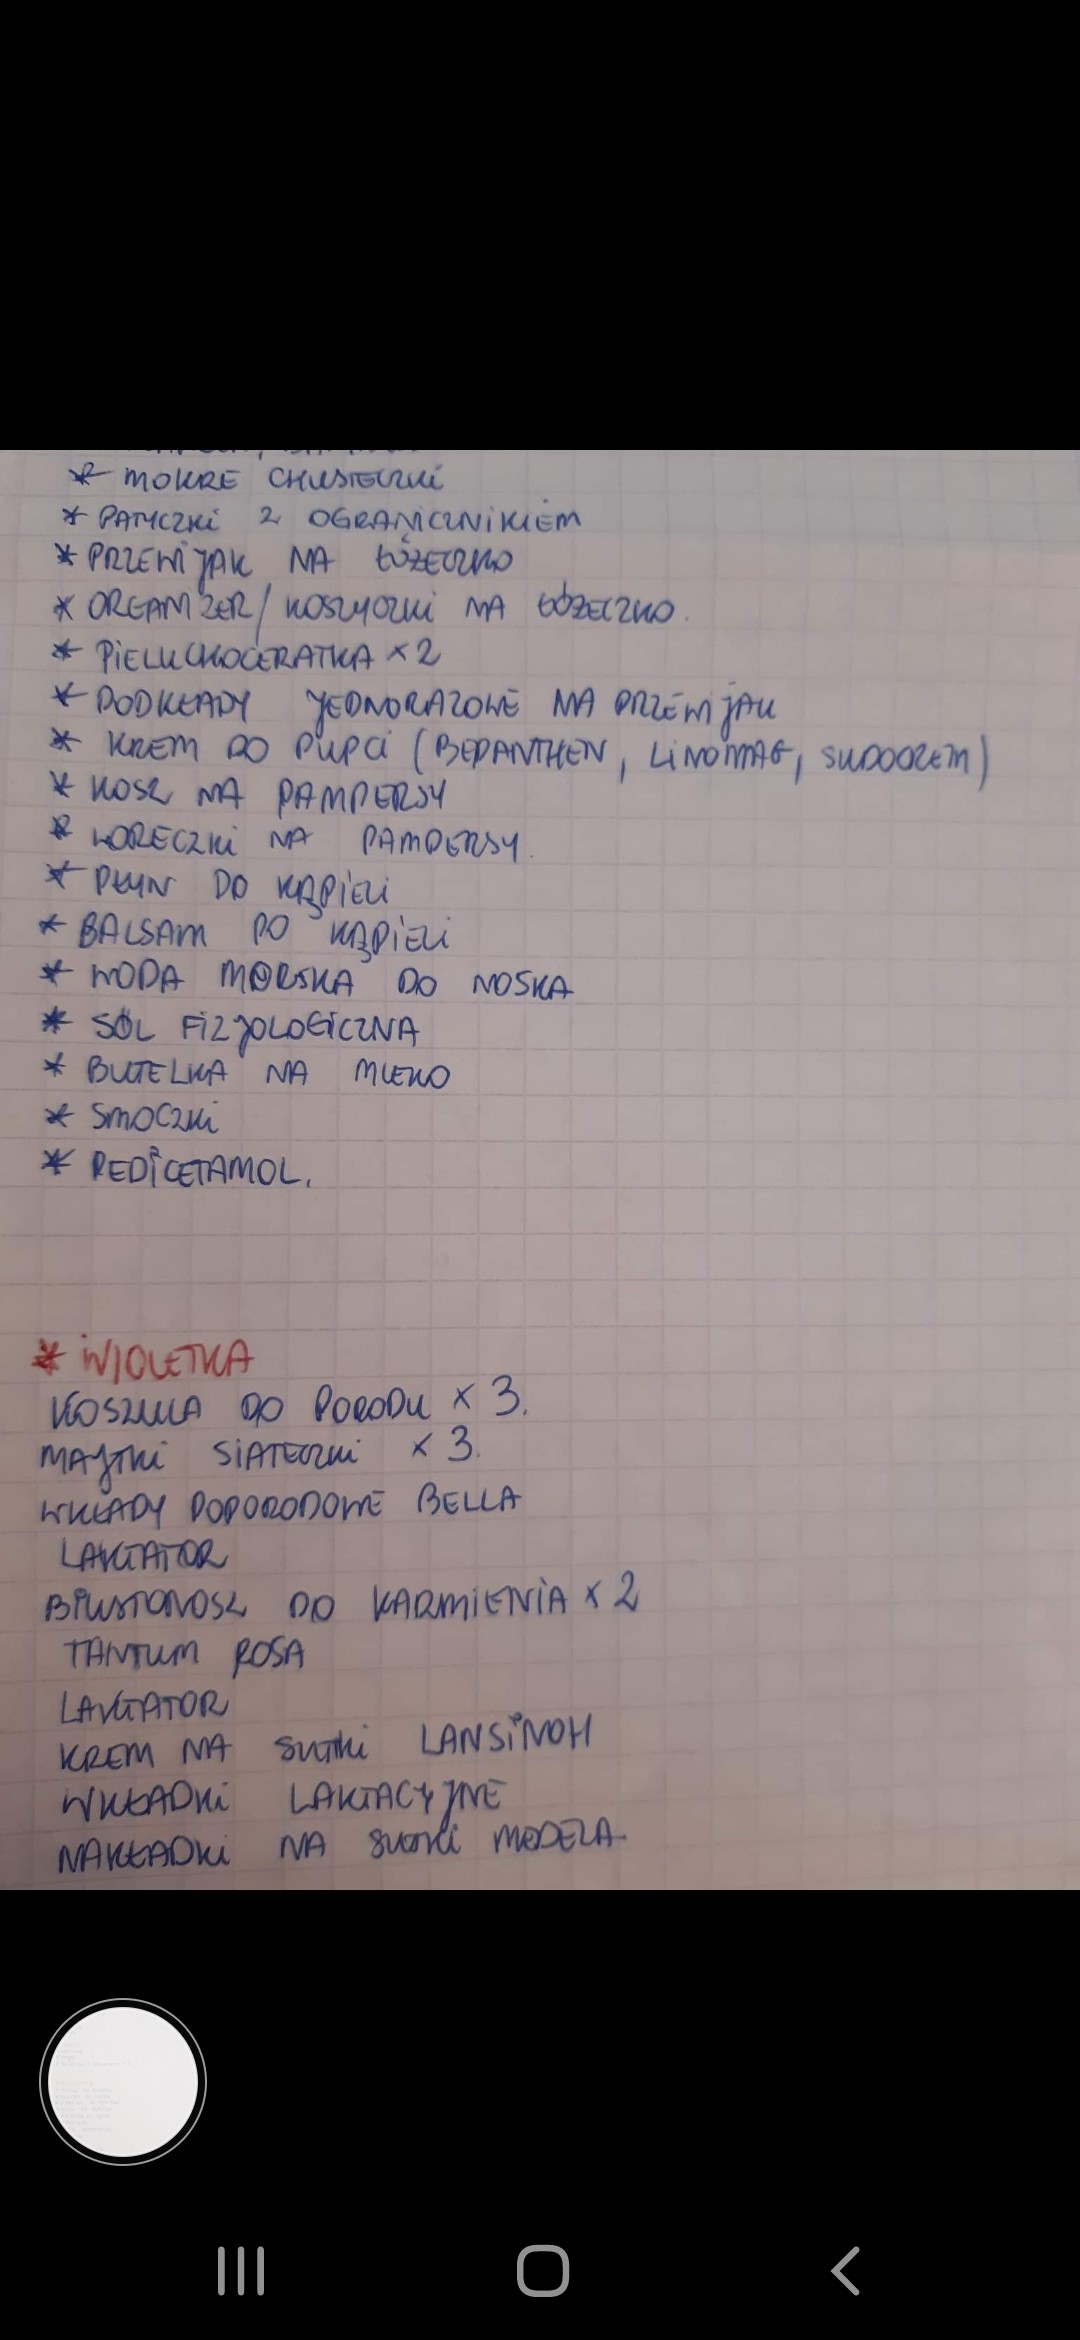 * MOKRE CHUSTECZKI
* PATYCZKI Z OGRANICZNIKIEM
* PRZEWIJAK NA ŁÓŻECZKO
* ORGANIZER/KOSZYCZKI NA ŁÓŻECZKO.
* PIELUCHOCERATKA x 2
* PODKŁADY JEDNORAZOWE NA PRZEWIJAK
* KREM DO PUPCI (BEPANTHEN, LINOMAG, SUDOCREM)
* KOSZ NA PAMPERSY
* WORECZKI NA PAMPERSY.
* PŁYN DO KĄPIELI
* BALSAM PO KĄPIELI
* WODA MORSKA DO NOSKA
* SÓL FIZJOLOGICZNA
* BUTELKA NA MLEKO
* SMOCZKI
* PEDICETAMOL.
* WIOLETKA
KOSZULA DO PORODU x 3.
MAJTKI SIATECZKI x 3.
WKŁADY POPORODOWE BELLA
LAKTATOR
BIUSTONOSZ DO KARMIENIA x 2
TANTUM ROSA
LAKTATOR
KREM NA SUTKI LANSINOH
WKŁADKI LAKTACYJNE
NAKŁADKI NA SUTKI MEDELA